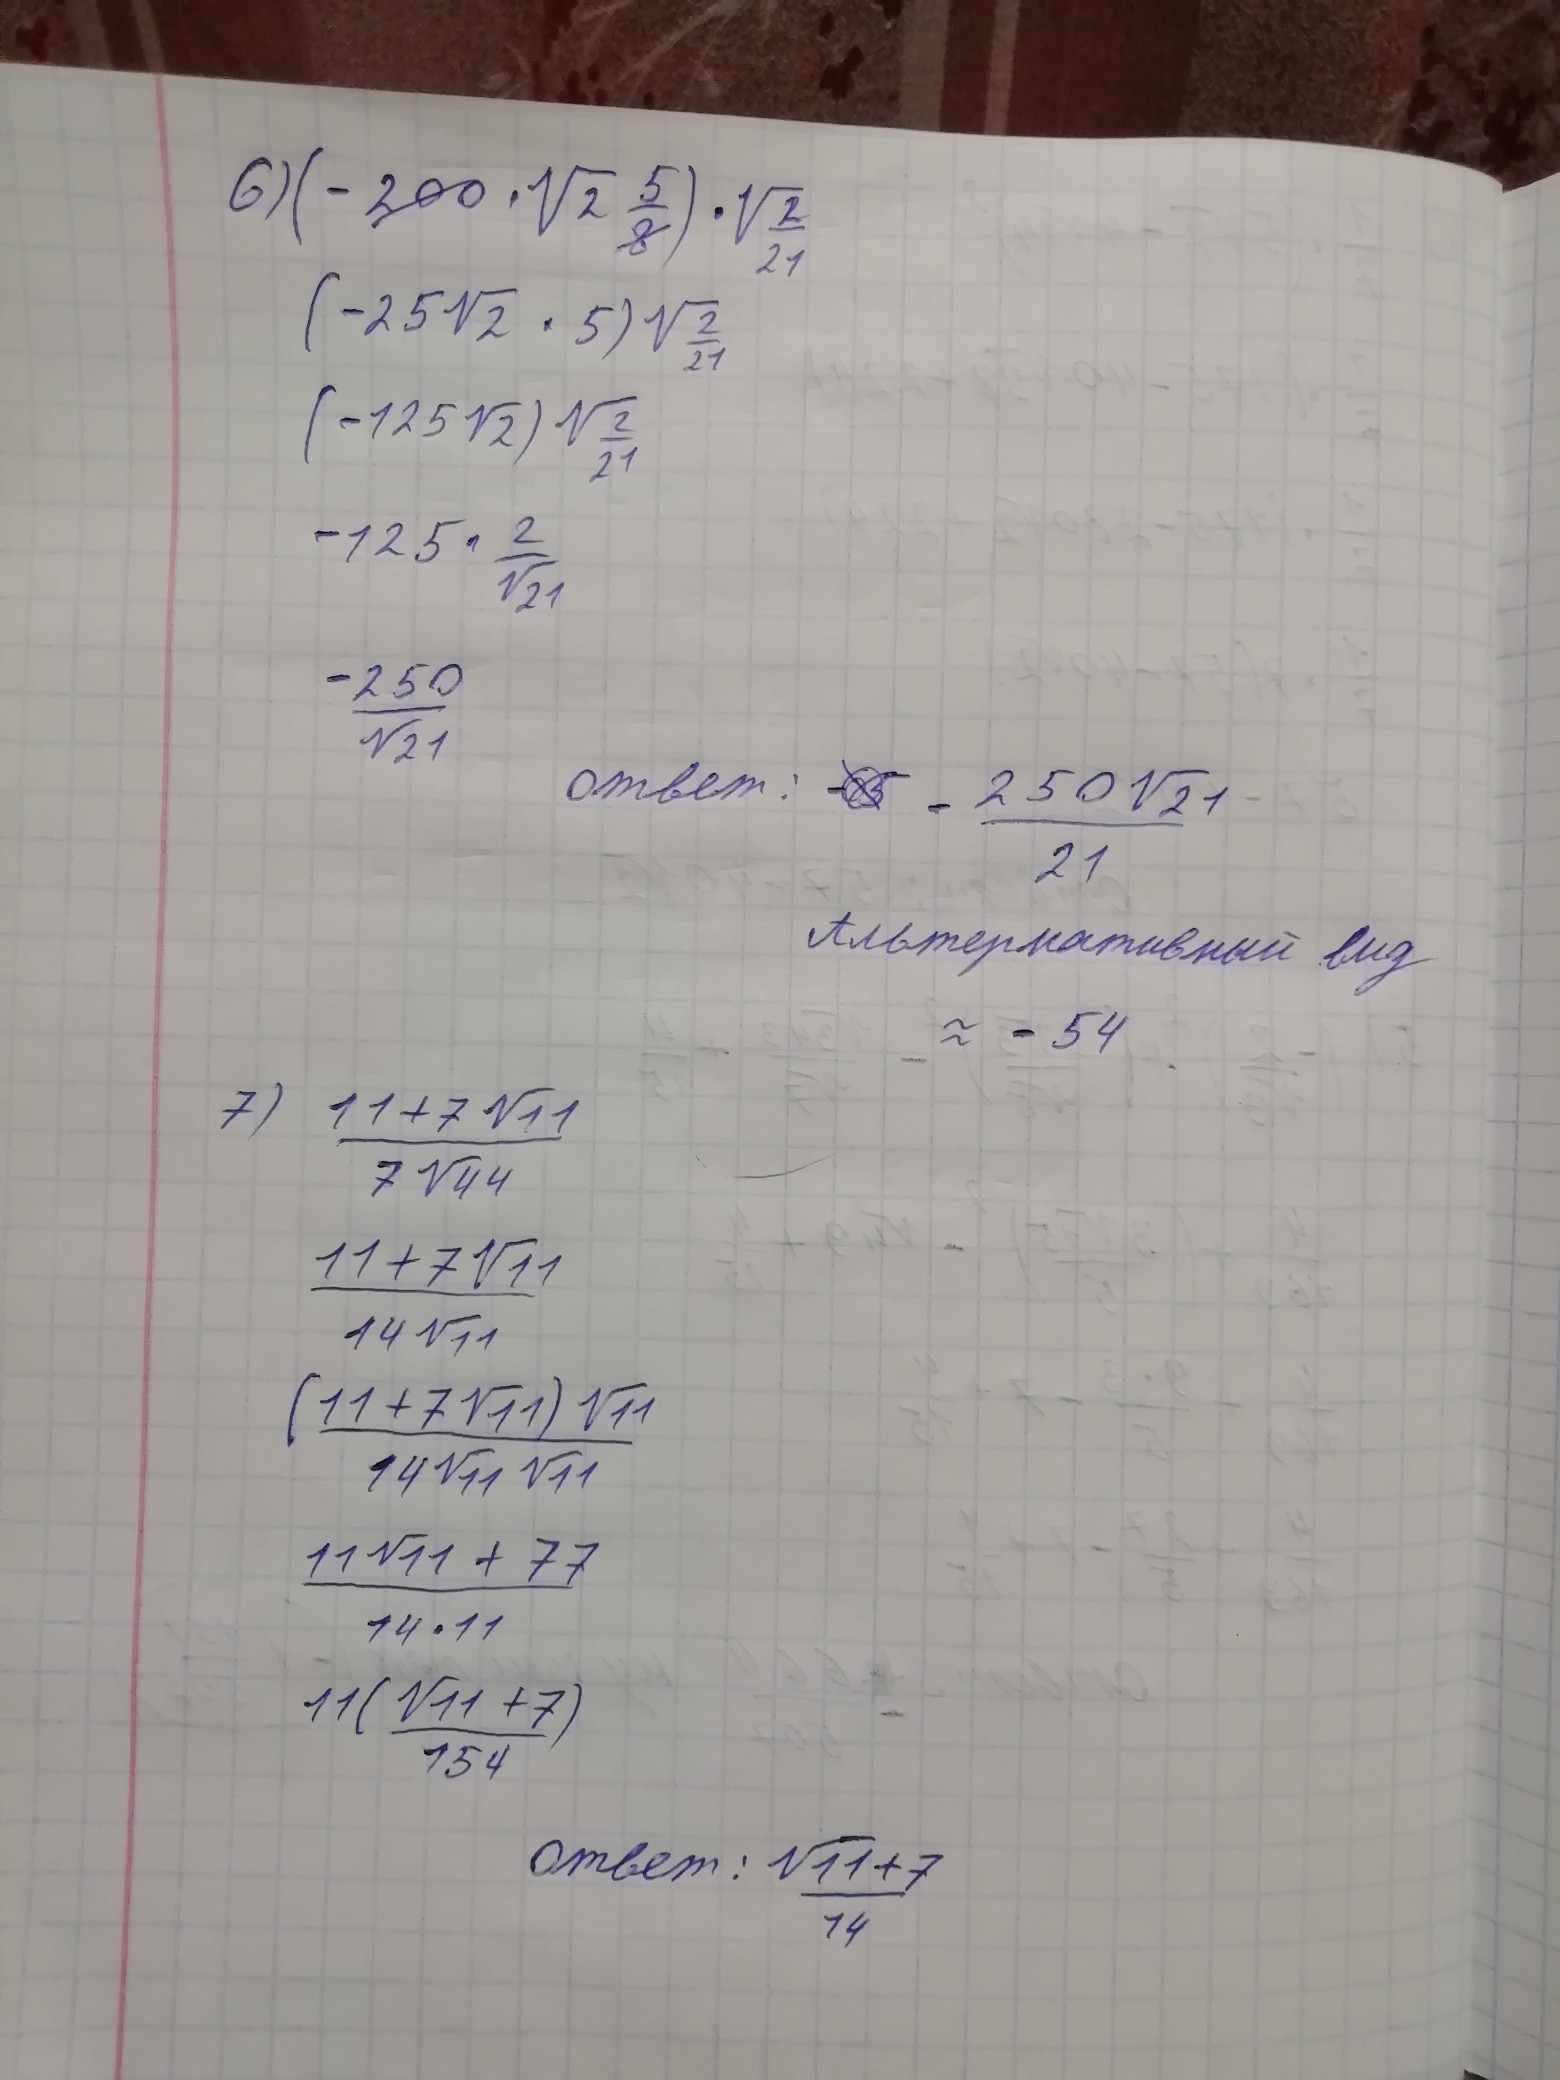 6) (-200 · √2 5/8) · √2/21
(-25√2 · 5) √2/21
(-125√2) √2/21
-125 · 2/√21
-250/√21
ответ: - 250√21/21
Альтернативный вид
≈ - 54
7) 11+7√11/7√44
11+7√11/14√11
(11+7√11)√11/14√11√11
11√11 + 77/14·11
11(√11+7/154)
ответ: √11+7/14